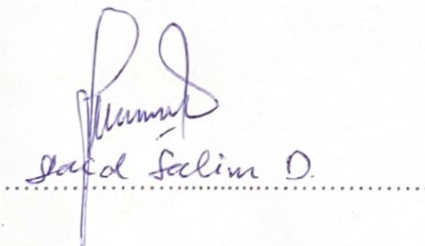 Said Salim D.